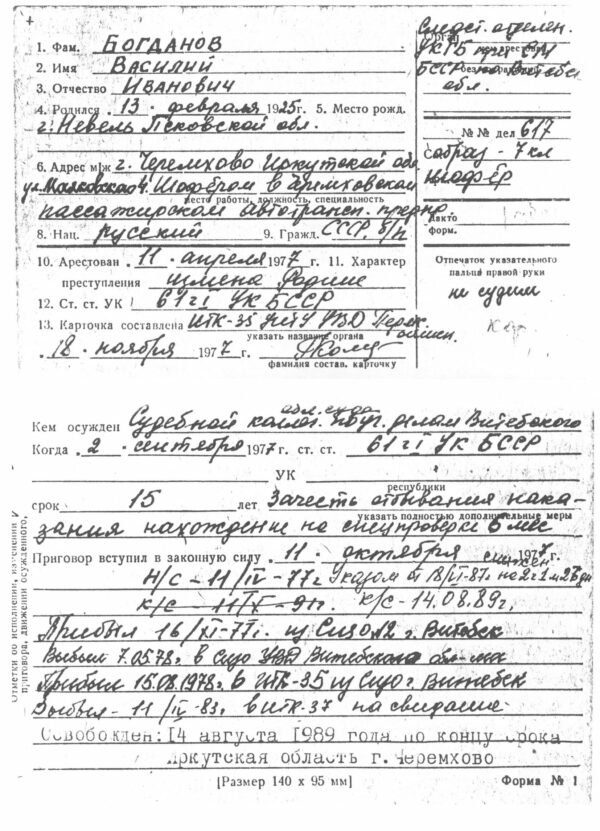 1. Фам. БОГДАНОВ
2. Имя ВАСИЛИЙ
3. Отчество ИВАНОВИЧ
4. Родился 13 · февраля 1925 г. 5. Место рожд.
г. Невель Псковской обл.
6. Адрес м/ж г. Черемхово Иркутской обл
ул. Маяковского 4. Шофёром в Черемховском
место работы, должность, специальность
пассажирском автотрансп. предпр
8. Нац. русский 9. Гражд. СССР, б/п
10. Арестован 11 · апреля 1977 г. 11. Характер
преступления измена Родине
12. Ст. ст. УК 61 ч I УК БССР
13. Карточка составлена ИТК-35 УВД
указать название органа
18 · ноября 1977 г.
фамилия состав. карточку
Следст. отделен.
Орган
УКГБ при СМ
БССР по Витебск
обл.
№ № дел 617
образ - 7 кл
шофёр
Дакто
форм.
Отпечаток указательного
пальца правой руки
не судим
Кем осужден Судебной коллег. по уг. делам Витебского
обл. суда
Когда 2 · сентября 1977 г. ст. ст. 61 ч I УК БССР
УК
республики
срок 15 лет Зачесть отбывания нака-
указать полностью дополнительные меры
зания нахождение на спецпроверке 6 мес
Приговор вступил в законную силу 11 · октября 1977 г.
снижен
Н/С - 11/IV - 77 г Указом от 18/VI-87 г. на 2 г 1 м 27 дн
К/С - 11/X - 91 г. К/С - 14.08.89 г.
Прибыл 16/XI-77 г. из Сизо №2 г. Витебск
Выбыл 7.05.78 г. в Сизо УВД Витебского обл-ма
Прибыл 15.08.1978 г. в ИТК-35 из Сизо г. Витебск
Выбыл - 11/IV-83 г. в ИТК-37 на свидание
Освобожден: 14 августа 1989 года по концу срока
Иркутская область г. Черемхово
Отметки об исполнении, изменении
приговора, движении осужденного,
[Размер 140 х 95 мм] Форма № 1